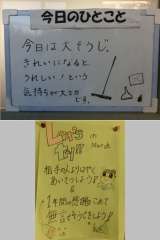 今日のひとこと
今日は大そうじ。
きれいになると
うれしい！という
気持ちが大事
です。
Let's
in
March
相手の人よりはやく
あいさつしよう!!
&
1年間の感謝をこめて
無言でそうじしよう!!